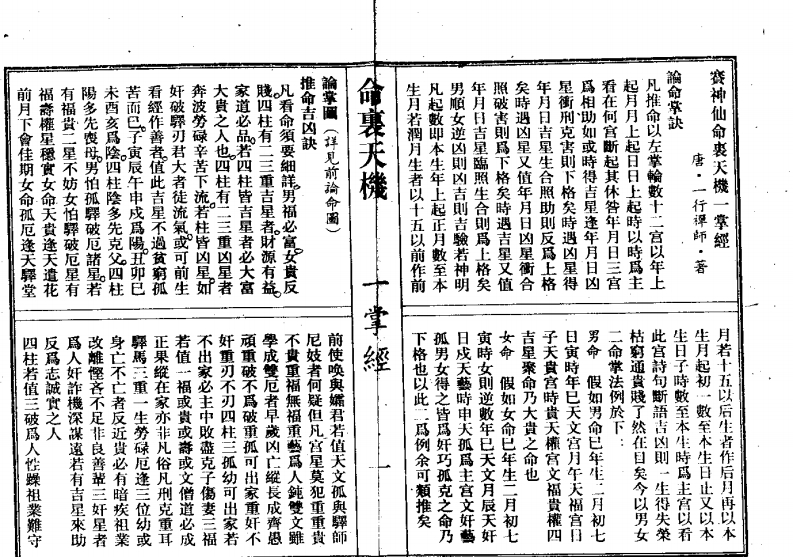 賽神仙命裏天機一掌經
唐．一行禪師．著
論命掌訣
凡推命以左掌輪數十二宮以年上
起月月上起日日上起時以時爲主
看在何宮斷起其休咎年月日三宮
爲相助如或時得吉星逢年月日凶
星衝刑克害則下格矣時遇凶星得
年月日吉星生合照助則反爲上格
矣時遇凶星又值年月日凶星衝合
照破害則爲下格矣時遇吉星又值
年月日吉星臨照生合則爲上格矣
男順女逆凶則凶吉則吉驗若神明
凡起數即本生年上起正月數至本
生月若潤月生者以十五以前作前
月若十五以后生者作后月再以本
生月起初一數至本生日止又以本
生日子時數至本生時爲主宮以看
此宮詩句斷語吉凶則一生得失榮
枯窮通貴賤了然在目矣今以男女
二命掌法例於下：
男命　假如男命巳年生二月初七
日寅時年巳天文宮月午天福宮日
子天貴宮時寅天權宮文福貴權四
吉星聚命乃大貴之命也
女命　假如女命巳年生二月初七
寅時女則逆數年巳天文月辰天奸
日戌天藝時申天孤爲主宮文奸藝
孤男女得之皆爲奸巧孤克之命乃
下格也以此二爲例余可類推矣
命裏天機　一掌經　一
論掌圖（詳見前論命圖）
推命吉凶訣
凡看命須要細詳男福必富女貴反
賤四柱有二三重吉星者財源有益
大貴之人也四柱有二三重凶星者
家道必品若四柱皆吉星者必大富
奔波勞碌辛苦下流若柱皆凶星如
奸破驛刃君大者徒流氣或可前生
看經作善者值此吉星不過貧窮孤
苦而已子寅辰午申戌爲陽丑卯巳
未酉亥爲陰四柱陰多先克父四柱
陽多先喪母男怕孤驛破厄諸星若
有福貴二星不妨女怕驛破厄星有
福壽權星穩實女命天貴逢天遣花
前月下會佳期女命孤厄逢天驛堂
前使喚與孀君若值天文孤與驛師
尼妓者何疑但凡宮星莫犯重重貴
不貴重福無福重藝爲人鈍雙文雖
學成雙厄者早歲凶亡縱長成齊愚
頑重破不爲破重孤可出家重奸不
奸重刃不刃四柱三孤幼可出家若
不出家必主中敗盡克子傷妻三福
若值一福或貴或壽或文僧道必成
正果縱在家亦非凡俗凡刑克重耳
驛馬三重一生勞碌厄逢三位幼或
身亡不亡者反近貴必有暗疾祖業
改離慳吝不足非良善輩三奸星者
爲人奸詐機深謀遠若有吉星來助
反爲志誠實之人
四柱若值三破爲人性躁祖業難守